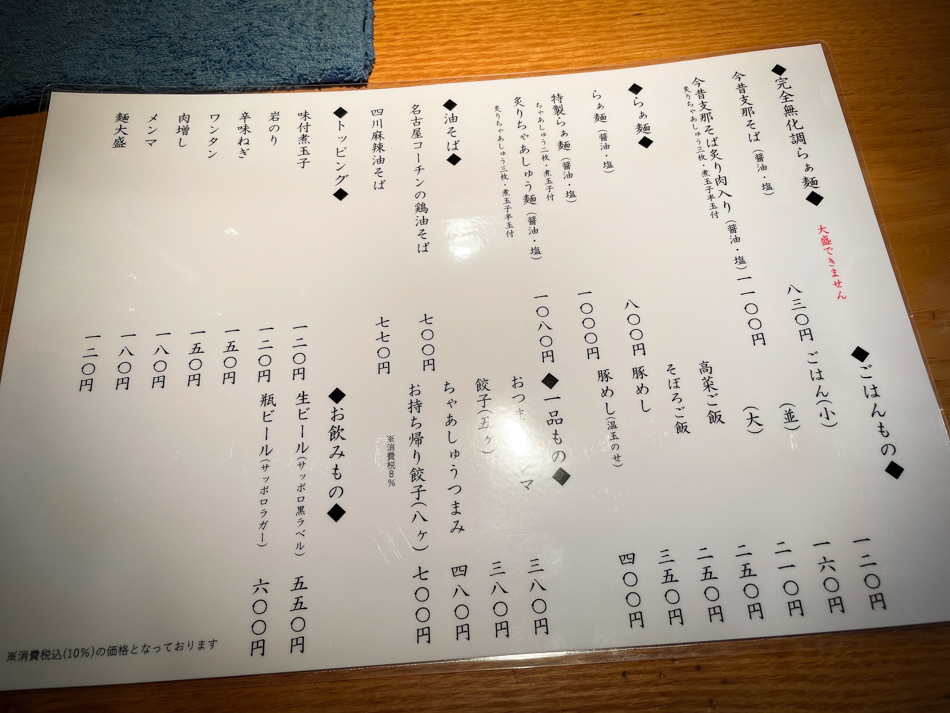 ◆完全無化調らぁ麺◆ 大盛できません
今昔支那そば(醤油・塩) 八三〇円
今昔支那そば炙り肉入り(醤油・塩) 一一〇〇円
炙りちゃあしゅう三枚・煮玉子半玉付
◆らぁ麺◆
らぁ麺(醤油・塩) 八〇〇円
特製らぁ麺(醤油・塩) 一〇〇〇円
ちゃあしゅう二枚・煮玉子付
炙りちゃあしゅう麺(醤油・塩) 一〇八〇円
炙りちゃあしゅう三枚・煮玉子半玉付
◆油そば◆
名古屋コーチンの鶏油そば 七〇〇円
四川麻辣油そば 七七〇円
◆トッピング◆
味付煮玉子 一二〇円
岩のり 一二〇円
辛味ねぎ 一五〇円
ワンタン 一五〇円
肉増し 一八〇円
メンマ 一八〇円
麺大盛 一二〇円
◆ごはんもの◆
ごはん(小) 一二〇円
(並) 一六〇円
(大) 二一〇円
高菜ご飯 二五〇円
そぼろご飯 二五〇円
豚めし 三五〇円
豚めし(温玉のせ) 四〇〇円
◆一品もの◆
三八〇円
餃子(五ヶ) 三八〇円
ちゃあしゅうつまみ 四八〇円
お持ち帰り餃子(八ヶ) 七〇〇円
※消費税8%
◆お飲みもの◆
生ビール(サッポロ黒ラベル) 五五〇円
瓶ビール(サッポロラガー) 六〇〇円
※消費税込(10%)の価格となっております